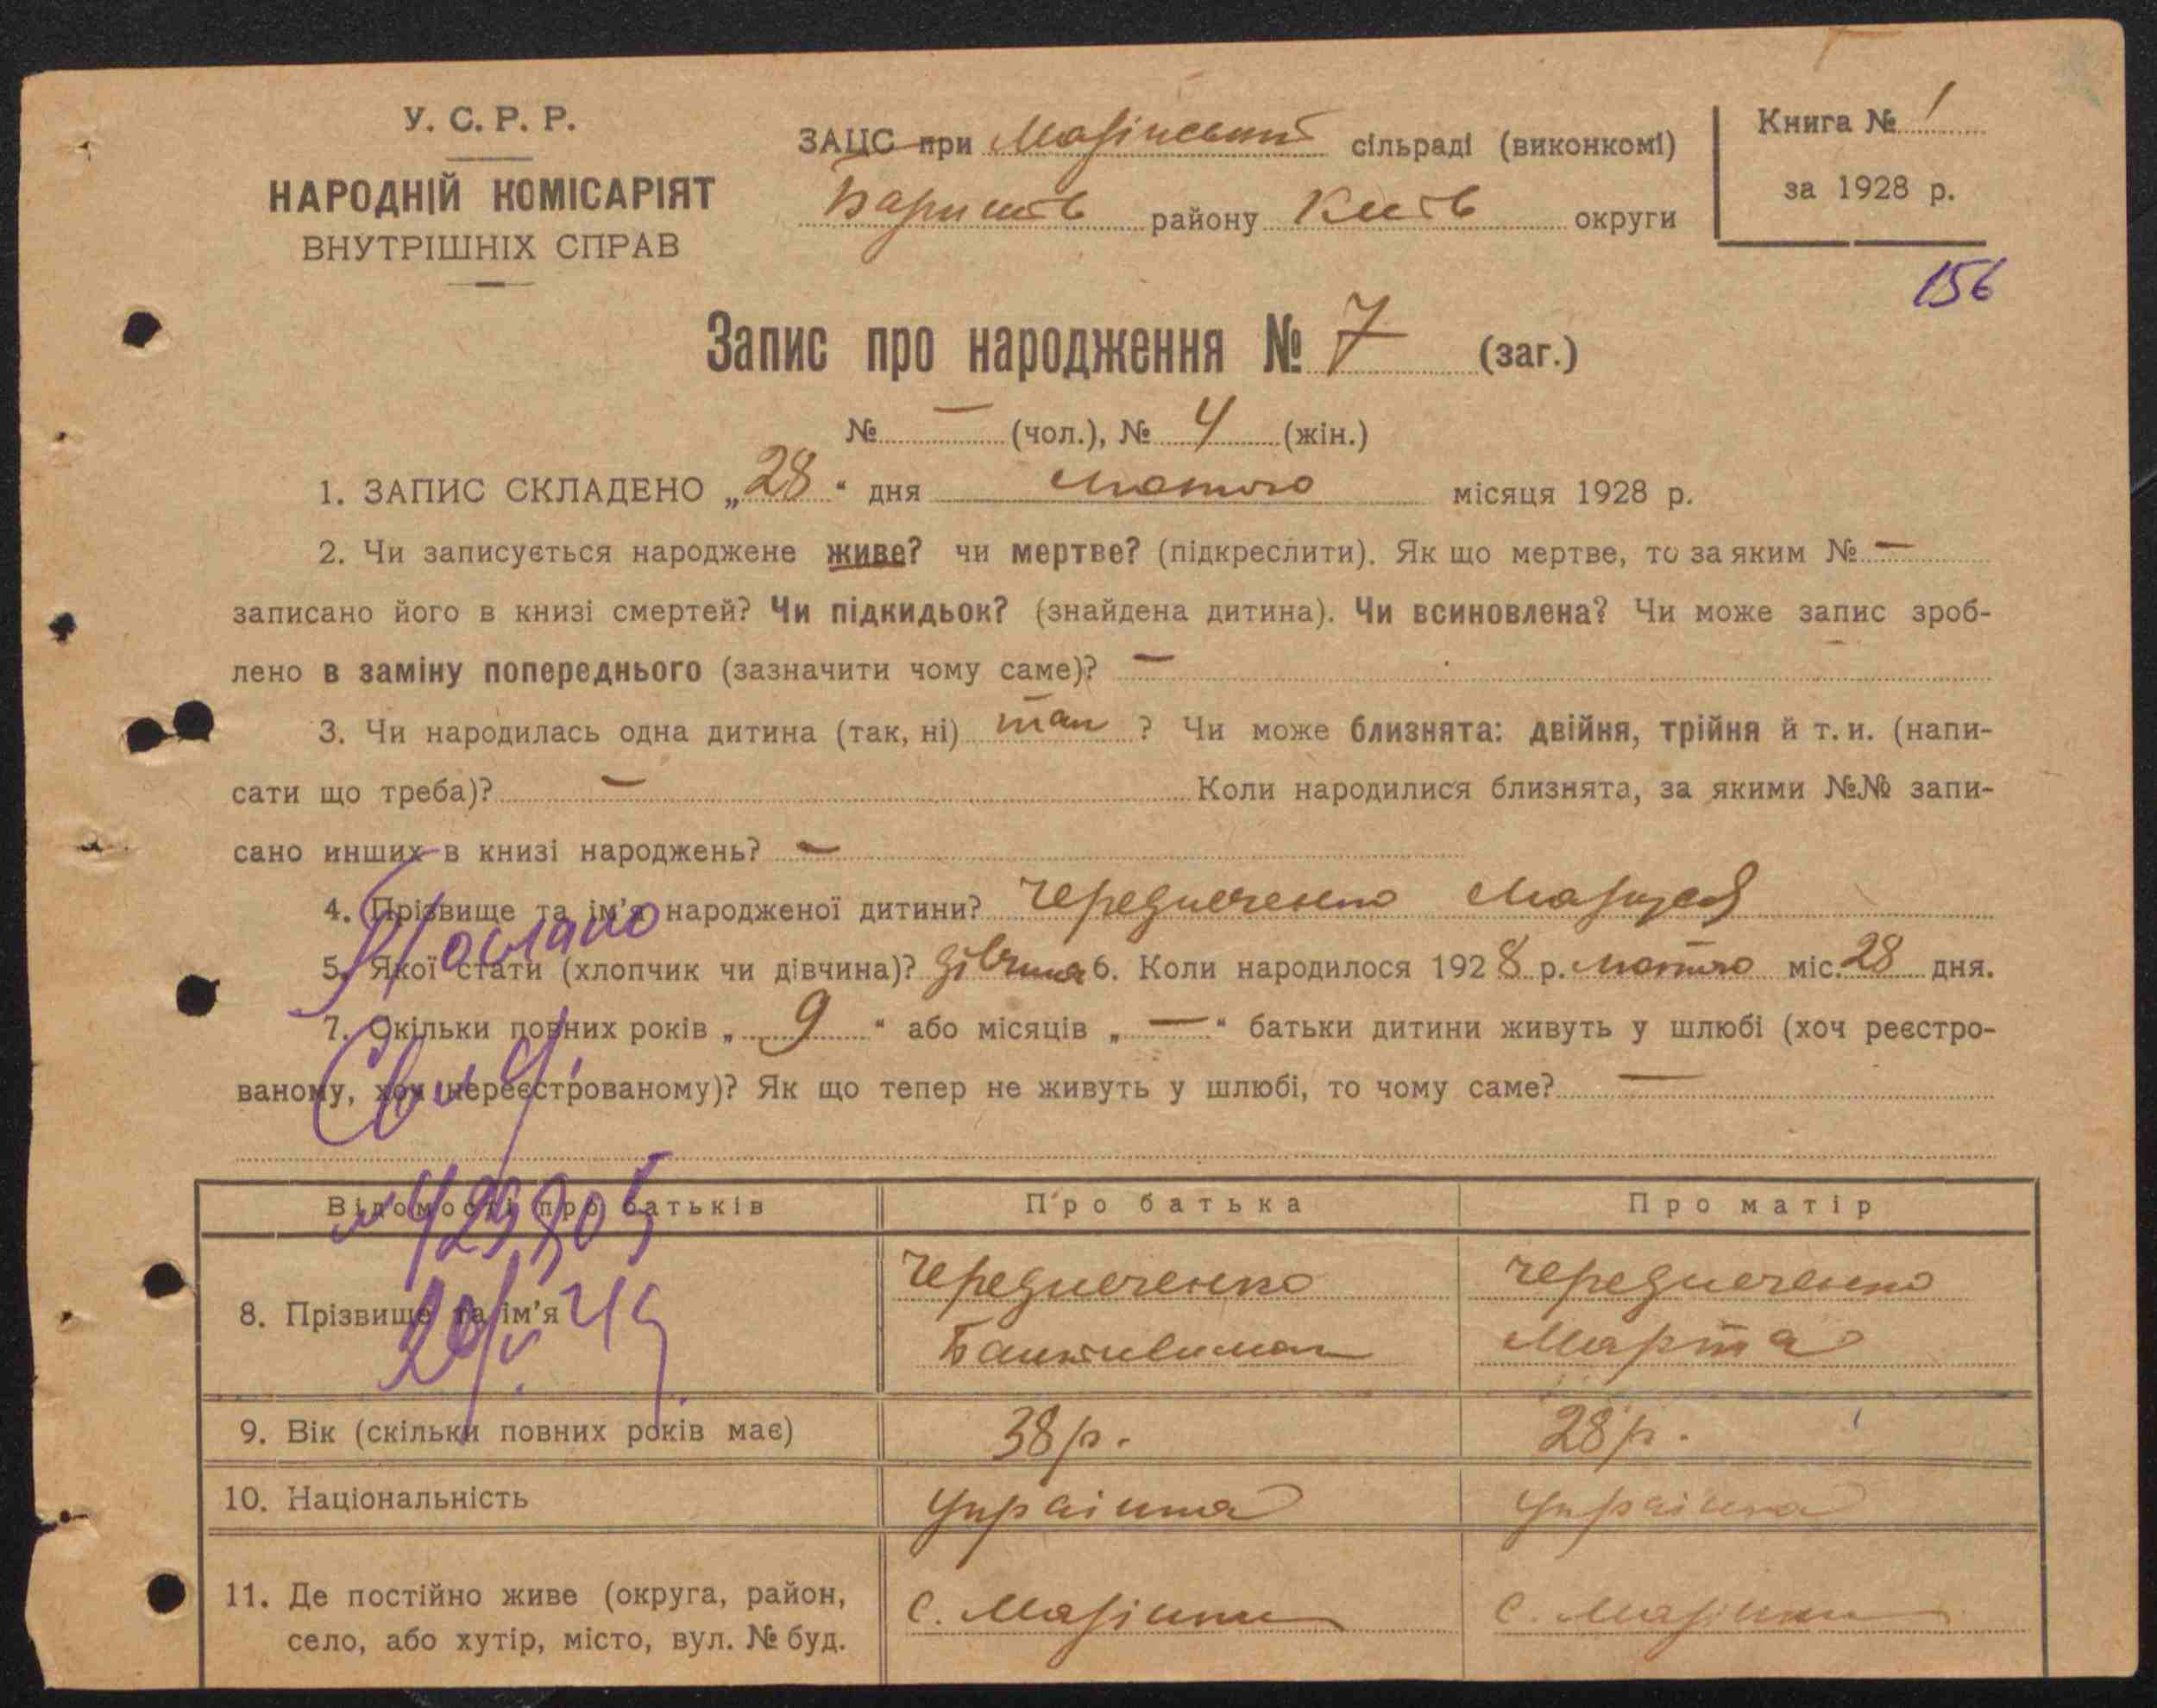 У. С. Р. Р.
НАРОДНІЙ КОМІСАРІЯТ
ВНУТРІШНІХ СПРАВ
ЗАЦС при сільраді (виконкомі)
Баришів району Київ округи
Книга № 1
за 1928 р.
156
Запис про народження № 7 (заг.)
№ — (чол.), № 4 (жін.)
1. ЗАПИС СКЛАДЕНО „28“ дня лютого місяця 1928 р.
2. Чи записується народжене живе? чи мертве? (підкреслити). Як що мертве, то за яким № —
записано його в книзі смертей? Чи підкидьок? (знайдена дитина). Чи всиновлена? Чи може запис зроб-
лено в заміну попереднього (зазначити чому саме)? —
3. Чи народилась одна дитина (так, ні) так ? Чи може близнята: двійня, трійня й т. и. (напи-
сати що треба)? — Коли народилися близнята, за якими №№ запи-
сано инших в книзі народжень? —
4. Прізвище та ім'я народженої дитини? Чередниченко Маруся
5. Якої стати (хлопчик чи дівчина)? дівчина 6. Коли народилося 1928 р. лютого міс. 28 дня.
7. Скільки повних років „ 9 “ або місяців „ — “ батьки дитини живуть у шлюбі (хоч реєстро-
ваному, хоч нереєстрованому)? Як що тепер не живуть у шлюбі, то чому саме? —
Послано
Відомості про батьків Про батька Про матір
8. Прізвище та ім'я Чередниченко Чередниченко
Марта
9. Вік (скільки повних років має) 38 р. 28 р.
10. Національність
11. Де постійно живе (округа, район,
село, або хутір, місто, вул. № буд.